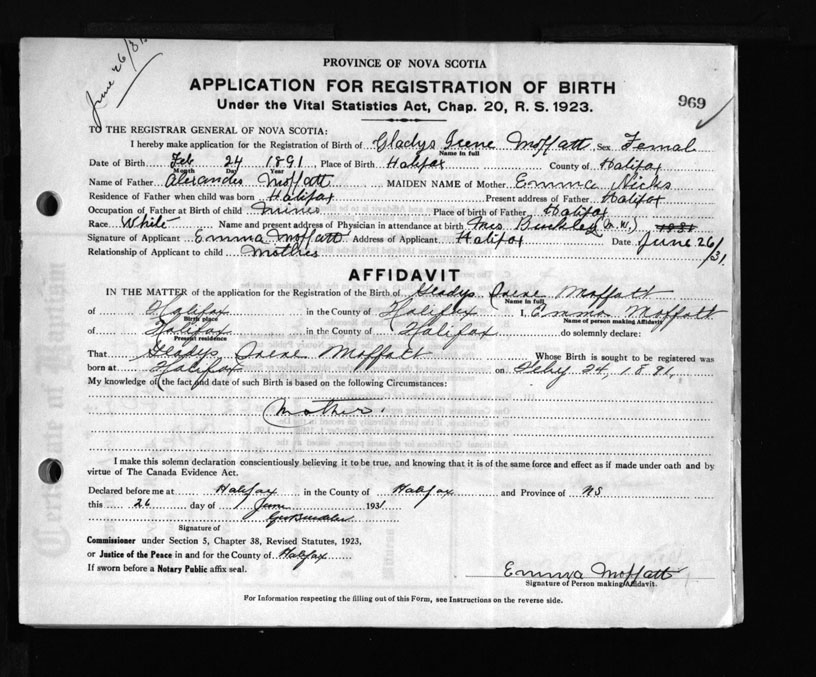 June 26/31
PROVINCE OF NOVA SCOTIA
APPLICATION FOR REGISTRATION OF BIRTH
969
Under the Vital Statistics Act, Chap. 20, R. S. 1923.
TO THE REGISTRAR GENERAL OF NOVA SCOTIA:
I hereby make application for the Registration of Birth of Gladys Irene Moffatt Sex Femal
Name in full
Date of Birth Feb 24 1891 Place of Birth Halifax County of Halifax
Month Day Year
Name of Father Alexander Moffatt MAIDEN NAME of Mother Emma Hicks
Residence of Father when child was born Halifax Present address of Father Halifax
Occupation of Father at Birth of child Place of birth of Father Halifax
Race White Name and present address of Physician in attendance at birth Mrs (M.W.) 1931
Signature of Applicant Emma Moffatt Address of Applicant Halifax Date June 26/31.
Relationship of Applicant to child Mother
AFFIDAVIT
IN THE MATTER of the application for the Registration of the Birth of Gladys Irene Moffatt
Name in full
of Halifax in the County of Halifax I, Emma Moffatt
Birth place Name of person making Affidavit
of Halifax in the County of Halifax do solemnly declare:
Present residence
That Gladys Irene Moffatt Whose Birth is sought to be registered was
born at Halifax on Feby 24, 1891,
My knowledge of (the fact and date of such Birth is based on the following Circumstances:
Mother.
I make this solemn declaration conscientiously believing it to be true, and knowing that it is of the same force and effect as if made under oath and by
virtue of The Canada Evidence Act.
Declared before me at Halifax in the County of Halifax and Province of NS
this 26 day of June 1931
Signature of
Commissioner under Section 5, Chapter 38, Revised Statutes, 1923,
or Justice of the Peace in and for the County of Halifax
If sworn before a Notary Public affix seal.
Emma Moffatt
Signature of Person making Affidavit.
For Information respecting the filling out of this Form, see Instructions on the reverse side.